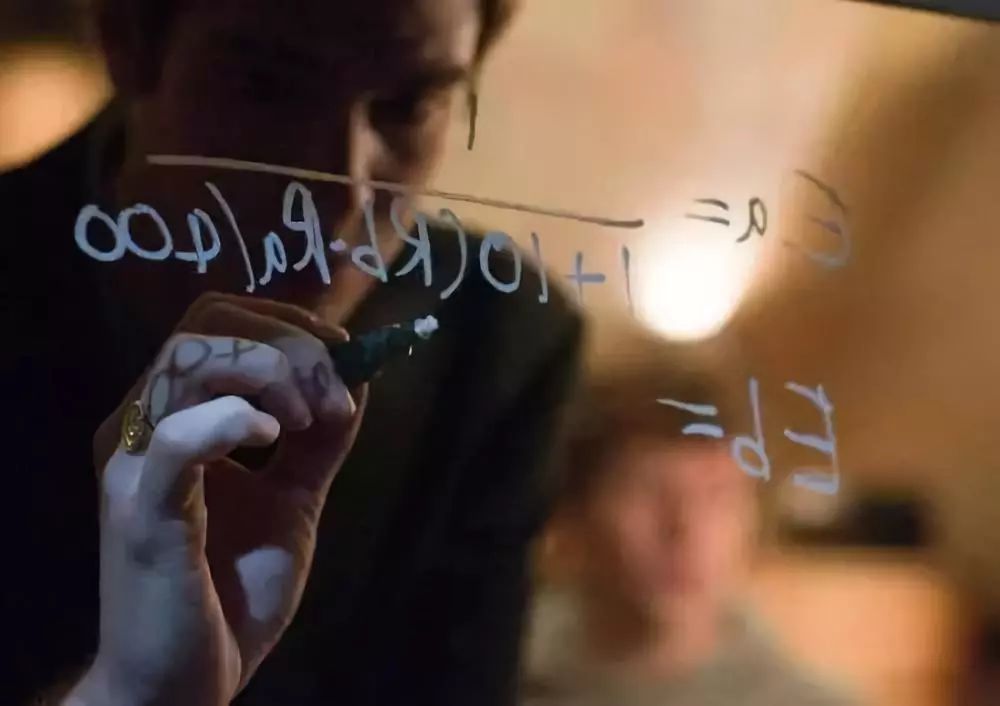 1
Ea =
1+10(Rb-Ra/400
Eb =